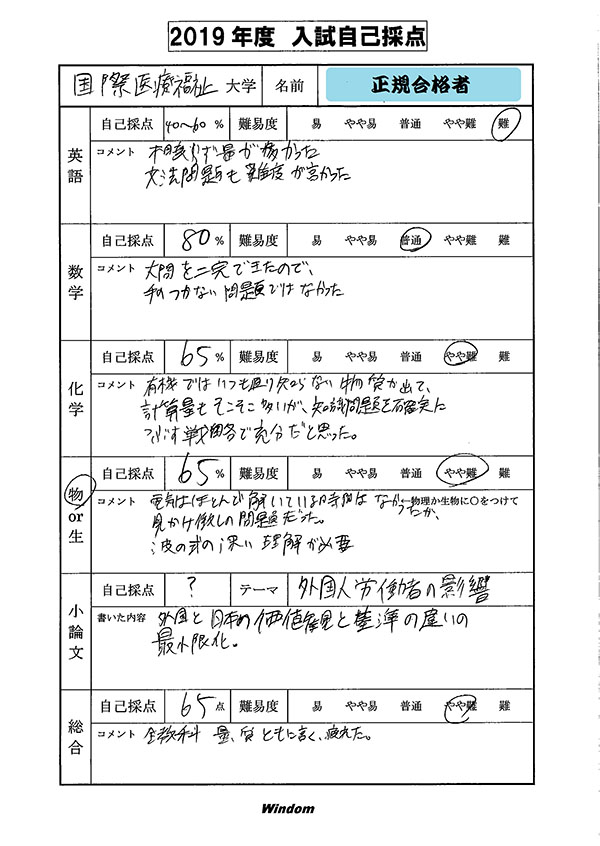 2019年度 入試自己採点
国際医療福祉 大学 名前 正規合格者
英語 自己採点 40〜60% 難易度 易 やや易 普通 やや難 難
コメント 相変わらず量が多かった
文法問題も難度が高かった
数学 自己採点 80% 難易度 易 やや易 普通 やや難 難
コメント 大問を二完できたので、
手のつかない問題ではなかった
化学 自己採点 65% 難易度 易 やや易 普通 やや難 難
コメント 有機ではいつも通り知らない物質が出て、
計算量もそこそこ多いが、知識問題を確実に
つぶす戦略で充分だと思った。
物or生 自己採点 65% 難易度 易 やや易 普通 やや難 難
コメント 電気はほとんど解いている時間はなかったが、 ←物理か生物に○をつけて
見かけ倒しの問題だった。
波の式の深い理解が必要
小論文 自己採点 ? テーマ 外国人労働者の影響
書いた内容 外国と日本の価値観と基準の違いの
最小限化。
総合 自己採点 65点 難易度 易 やや易 普通 やや難 難
コメント 全教科 量、質ともに高く、疲れた。
Windom